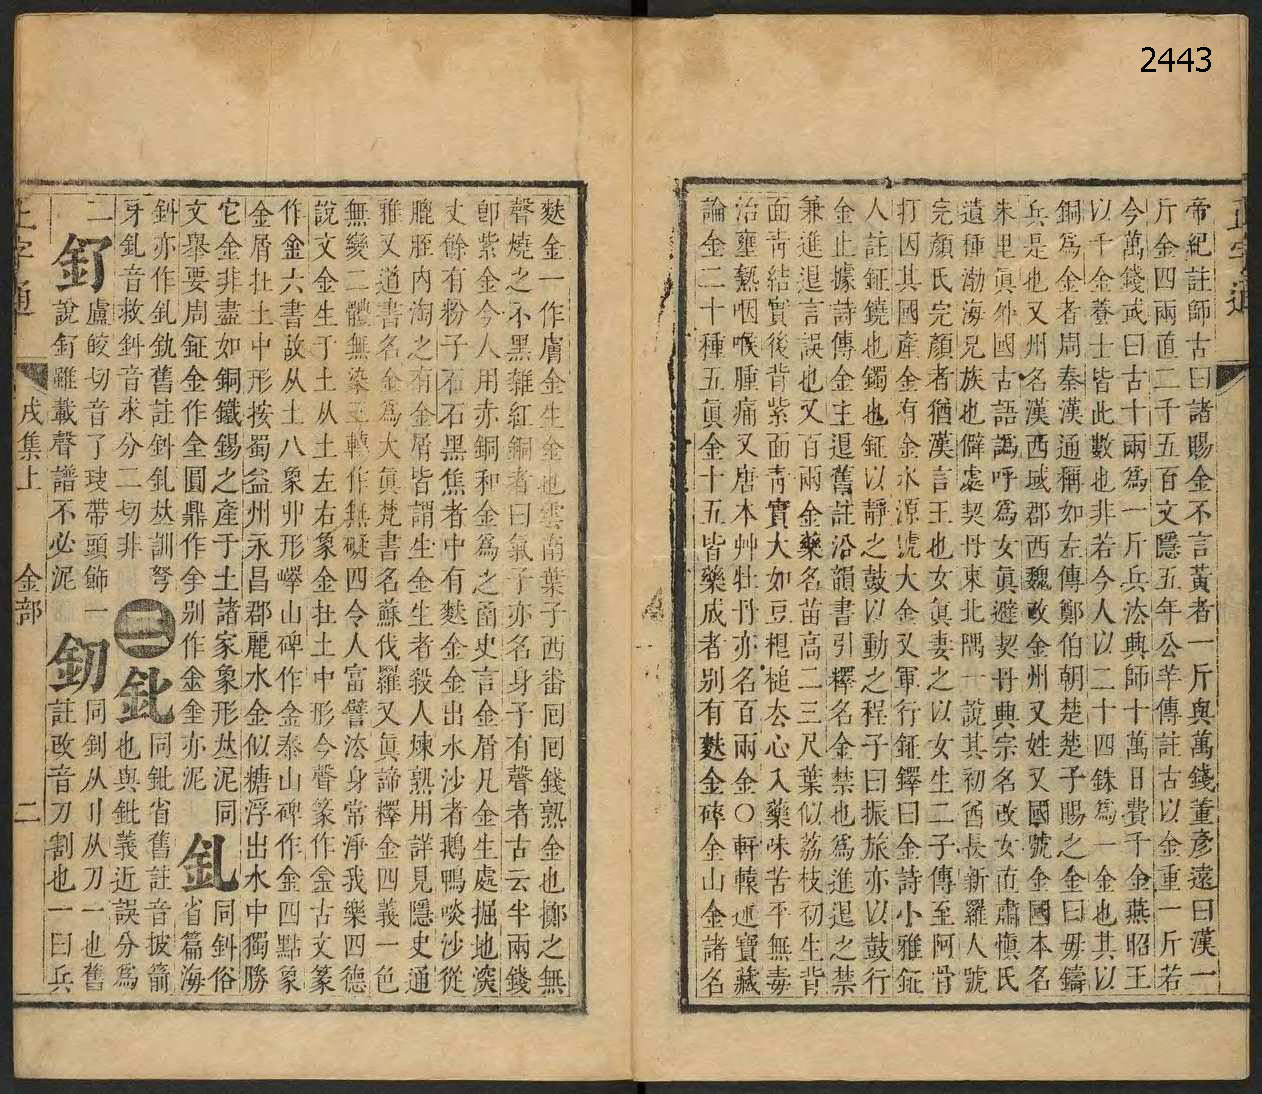 2443
正字通
帝紀註師古曰諸賜金不言黃者一斤與萬錢董彥遠曰漢一
斤金四兩直二千五百文隱五年公羊傳註古以金重一斤若
今萬錢或曰古十兩爲一斤兵法興師十萬日費千金燕昭王
以千金養士皆此數也非若今人以二十四銖爲一金也其以
銅爲金者周秦漢通稱如左傳鄭伯朝楚楚子賜之金曰毋鑄
兵是也又州名漢西域郡西魏改金州又姓又國號金國本名
朱里眞外國古語譌呼爲女眞避契丹興宗名改女而肅愼氏
遺種渤海兄族也僻處契丹東北隅一說其初酋長新羅人號
完顏氏完顏者猶漢言王也女眞妻之以女生二子傳至阿骨
打因其國產金有金水源號大金又軍行鉦鐸曰金詩小雅鉦
人註鉦鐃也鐲也鉦以靜之鼓以動之程子曰振旅亦以鼓行
金止據詩傳金主退舊註沿韻書引釋名金禁也爲進退之禁
兼進退言誤也又百兩金藥名苗高二三尺葉似荔枝初生背
面靑結實後背紫面靑實大如豆棍槌去心入藥味苦平無毒
治壅熱咽喉腫痛又唐本艸牡丹亦名百兩金○軒轅述寶藏
論金二十種五眞金十五皆藥成者别有麩金碎金山金諸名
麩金一作膚金生金也雲南葉子西番囘囘錢熟金也擲之無
聲燒之不黑雜紅銅者曰氣子亦名身子有聲者古云半兩錢
卽紫金今人用赤銅和金爲之商史言金屑凡金生處掘地深
丈餘有粉子石石黑焦者中有麩金金出水沙者鵝鴨啖沙從
腮脛內淘之有金屑皆謂生金生者殺人煉熟用詳見隱史通
雅又道書名金爲大眞梵書名蘇伐羅又眞諦釋金四義一色
無變二體無染三轉作無礙四令人富譬法身常淨我樂四德
說文金生于土从土左右象金在土中形今聲篆作金古文篆
作金六書故从土八象丱形嶧山碑作金泰山碑作金四點象
金屑在土中形按蜀益州永昌郡麗水金似糖浮出水中獨勝
它金非盡如銅鐵錫之產于土諸家象形𠀤泥同 釓 同釻俗省篇海
文舉要周鉦金作全圓鼎作𠇍别作金𨤾亦泥
釻亦作釓釚舊註釻釓𠀤訓弩 二 釓 同鈚省舊註音披箭
牙釓音救釻音求分二切非 也與鈚義近誤分爲
二 釕 盧皎切音了玻帶頭飾一 釖 同釗从刂从刀一也舊
說釕離戴聲譜不必泥 註改音刀割也一曰兵
正字通
戌集上
金部
二